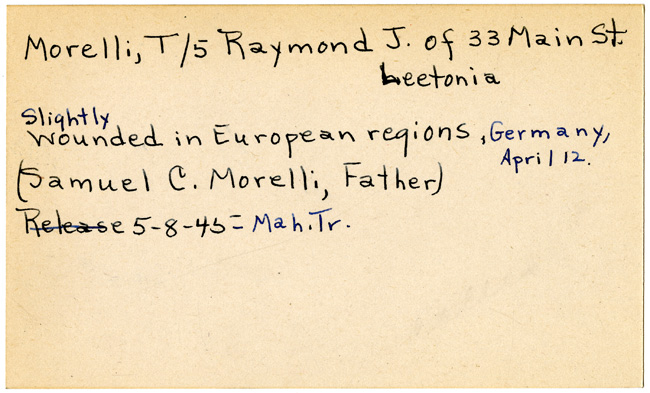 Morelli, T/5 Raymond J. of 33 Main St.
Leetonia
Slightly
wounded in European regions, Germany,
April 12.
(Samuel C. Morelli, Father)
Release 5-8-45= Mah.Tr.